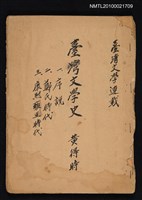 NMTL20100021709
臺灣文學連載
臺灣文學史 黃得時
一、序說
二、鄭氏時代
三、康熙雍正時代